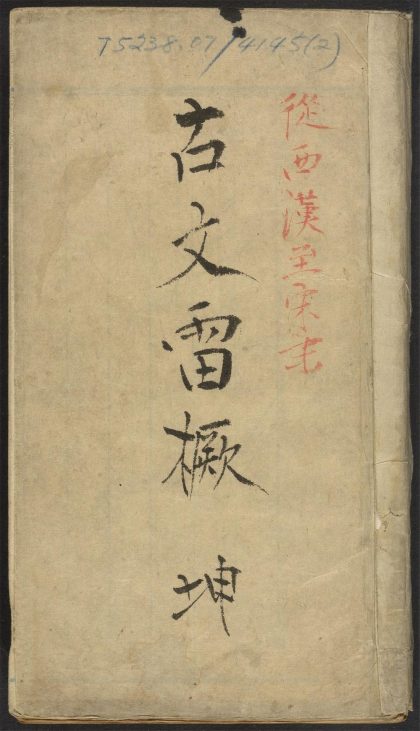 T5238.07/4145(2)
從西漢至宋末
古文雷橛 坤